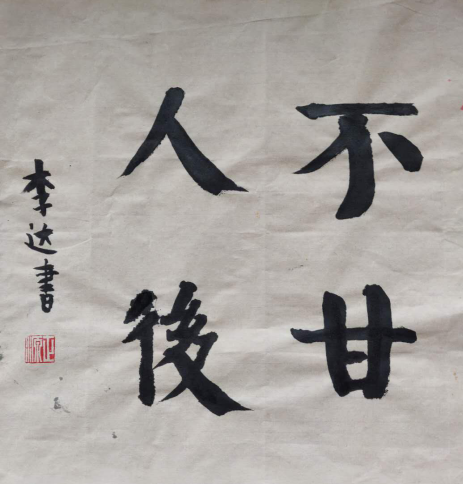 不甘
人後
李达書